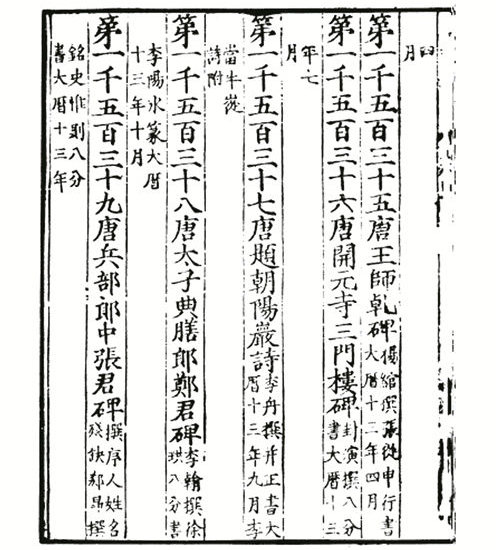 四
月
第一千五百三十五唐王師乾碑
楊綰撰張從申行書
大曆十二年四月
第一千五百三十六唐開元寺三門樓碑
封演撰八分
書大曆十三
年七
月
第一千五百三十七唐題朝陽巖詩
李丹撰并正書大
曆十三年九月李
當半
詩附
第一千五百三十八唐太子典膳郎鄭君碑
李翰撰徐
珙八分書
李陽冰篆大曆
十三年十月
第一千五百三十九唐兵部郎中張君碑
撰序人姓名
殘缺鄭昂撰
銘史惟則八分
書大曆十三年